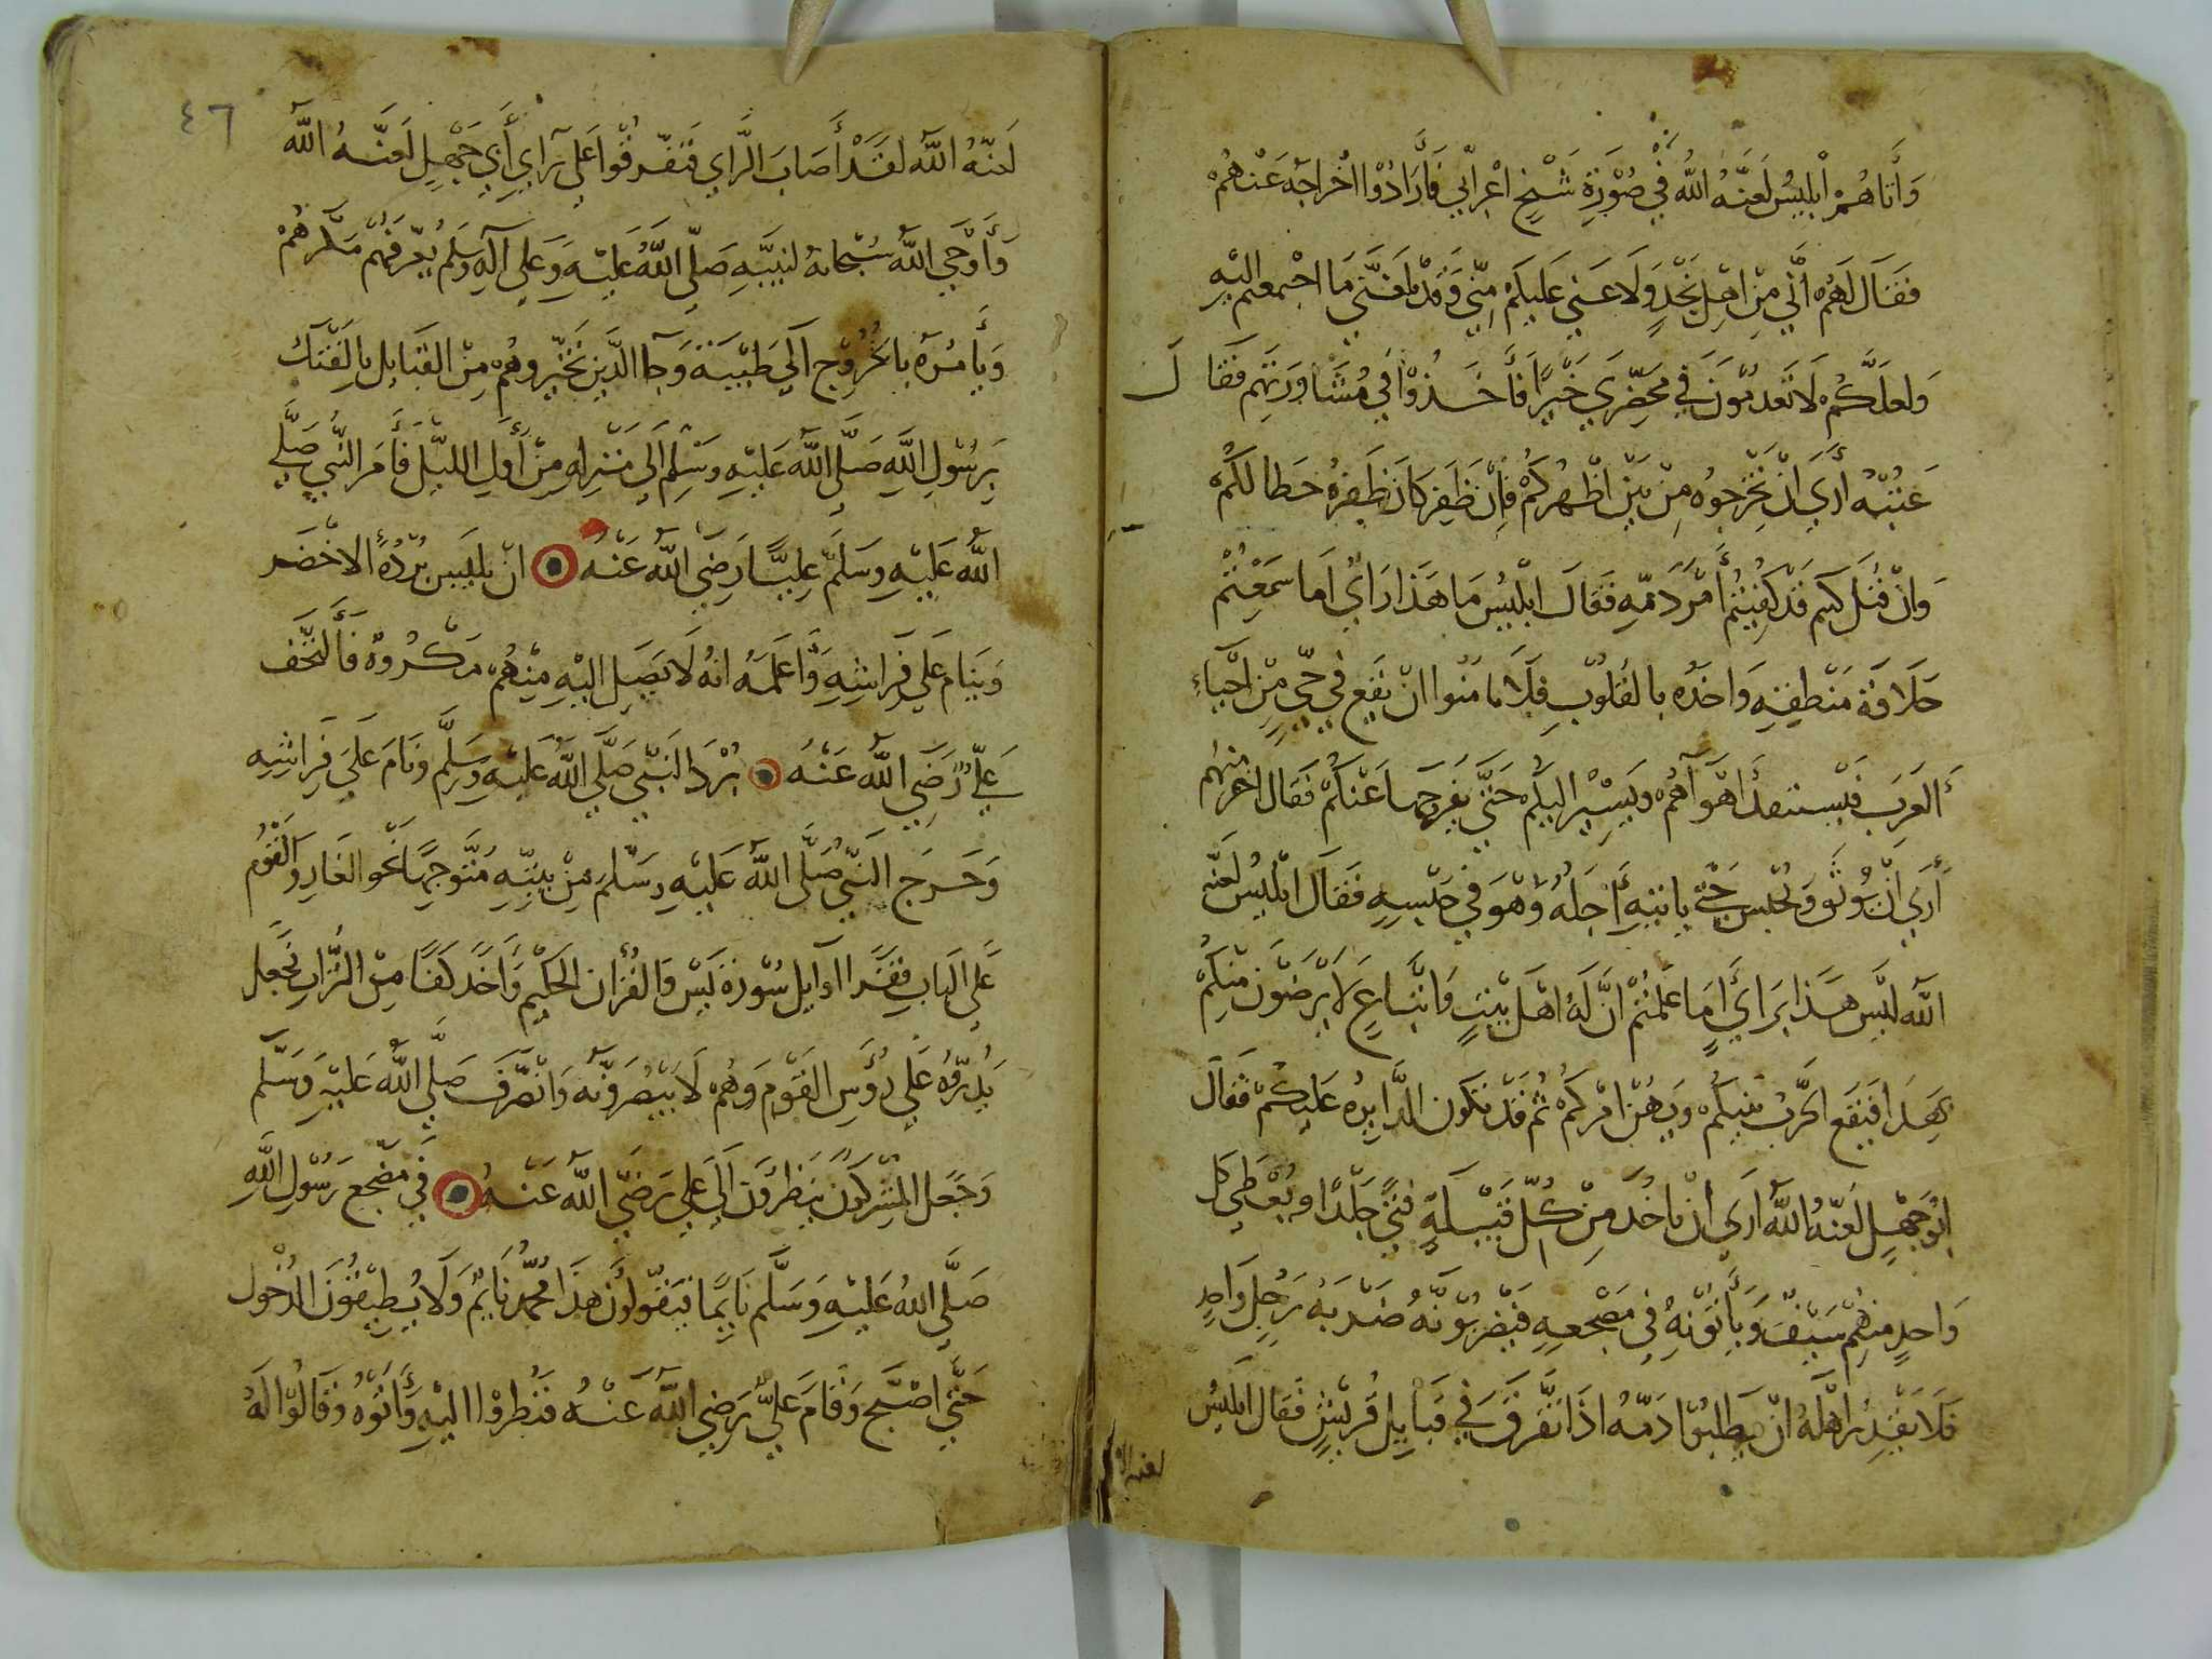 وأتاهم ابليس لعنه الله في صورة شيخ اعرابي فأرادوا اخراجه عنهم
فقال لهم اني من اهل نجد ولا عنى عليكم مني وقد بلغني ما اجتمعتم اليه
ولعلكم لا تعدمون في محضري خيرا فأخذوا في مشاورتهم فقال
عتبه أرى ان تخرجوه من بين اظهركم فإن ظفر كان ظفره حطا لكم
وان قتل كيم قد كفيتم أمر دمه فقال ابليس ما هذا راي اما سمعتم
حلاقة منطقه واخذه بالقلوب فلا مامنوا ان يقع في حي من احياء
العرب فيستنفد أهوآهم ويسير اليكم حتى يفرجها عنكم فقال اخر منهم
أرى ان يوثق ويحبس حتى ياتيه أجله وهو في حبسه فقال ابليس لعنه
الله ليس هذا براي أما علمتم ان له اهل بيت واتباع لا يرضون منكم
بهذا فيقع الحرب بينكم ويهن امركم ثم قد تكون الدايره عليكم فقال
ابو جهل لعنه الله ارى ان ناخذ من كل قبيلة فتى جلدا ويعطى كل
واحد منهم سيف ويأتونه في مضجعه فيضربونه ضربه رجل واحد
فلا يقدر اهله ان يطلبوا دمه اذا تفرق في قبايل قريش فقال ابليس
لعنه الله
٤٦
لعنه الله لقد أصاب الراي فتفرقوا على رأي أبي جهل لعنه الله
وأوحى الله سبحانه لنبيه صلى الله عليه وعلى آله وسلم يعرفهم مكرهم
ويأمره بالخروج الى طيبة وجا الذين تخيروهم من القبايل بالفتك
برسول الله صلى الله عليه وسلم الى منزله من أول الليل فأمر النبي صلى
الله عليه وسلم عليا رضي الله عنه ان يلبس برده الاخضر
وينام على فراشه واعلمه انه لا يصل اليه منهم مكروه فألتحف
علي رضي الله عنه برد النبي صلى الله عليه وسلم ونام على فراشه
وخرج النبي صلى الله عليه وسلم من بيته متوجها نحو الغار والقوم
على الباب فقرا اوايل سورة يس والقرأن الحكيم وأخذ كفا من التراب فجعل
يذره على رؤس القوم وهم لا يبصرونه وانصرف صلى الله عليه وسلم
وجعل المشركون ينظرون الى علي رضي الله عنه في مضجع رسول الله
صلى الله عليه وسلم نايما فيقولون هذا محمد نايم ولا يطيقون الدخول
حتى اصبح وقام علي رضي الله عنه فنظروا اليه وأتوه وقالوا له